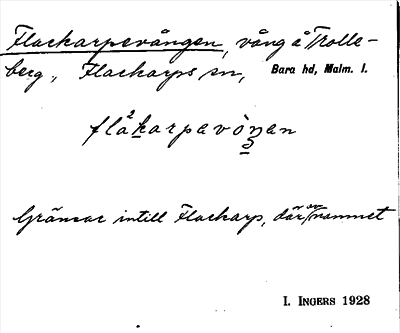 Flackarpsvången, vång å Trolle-
berg, Flackarps sn, Bara hd, Malm. l.
flåkarpsvòŋen
Gränsar intill Flackarp, därav namnet
I. INGERS 1928